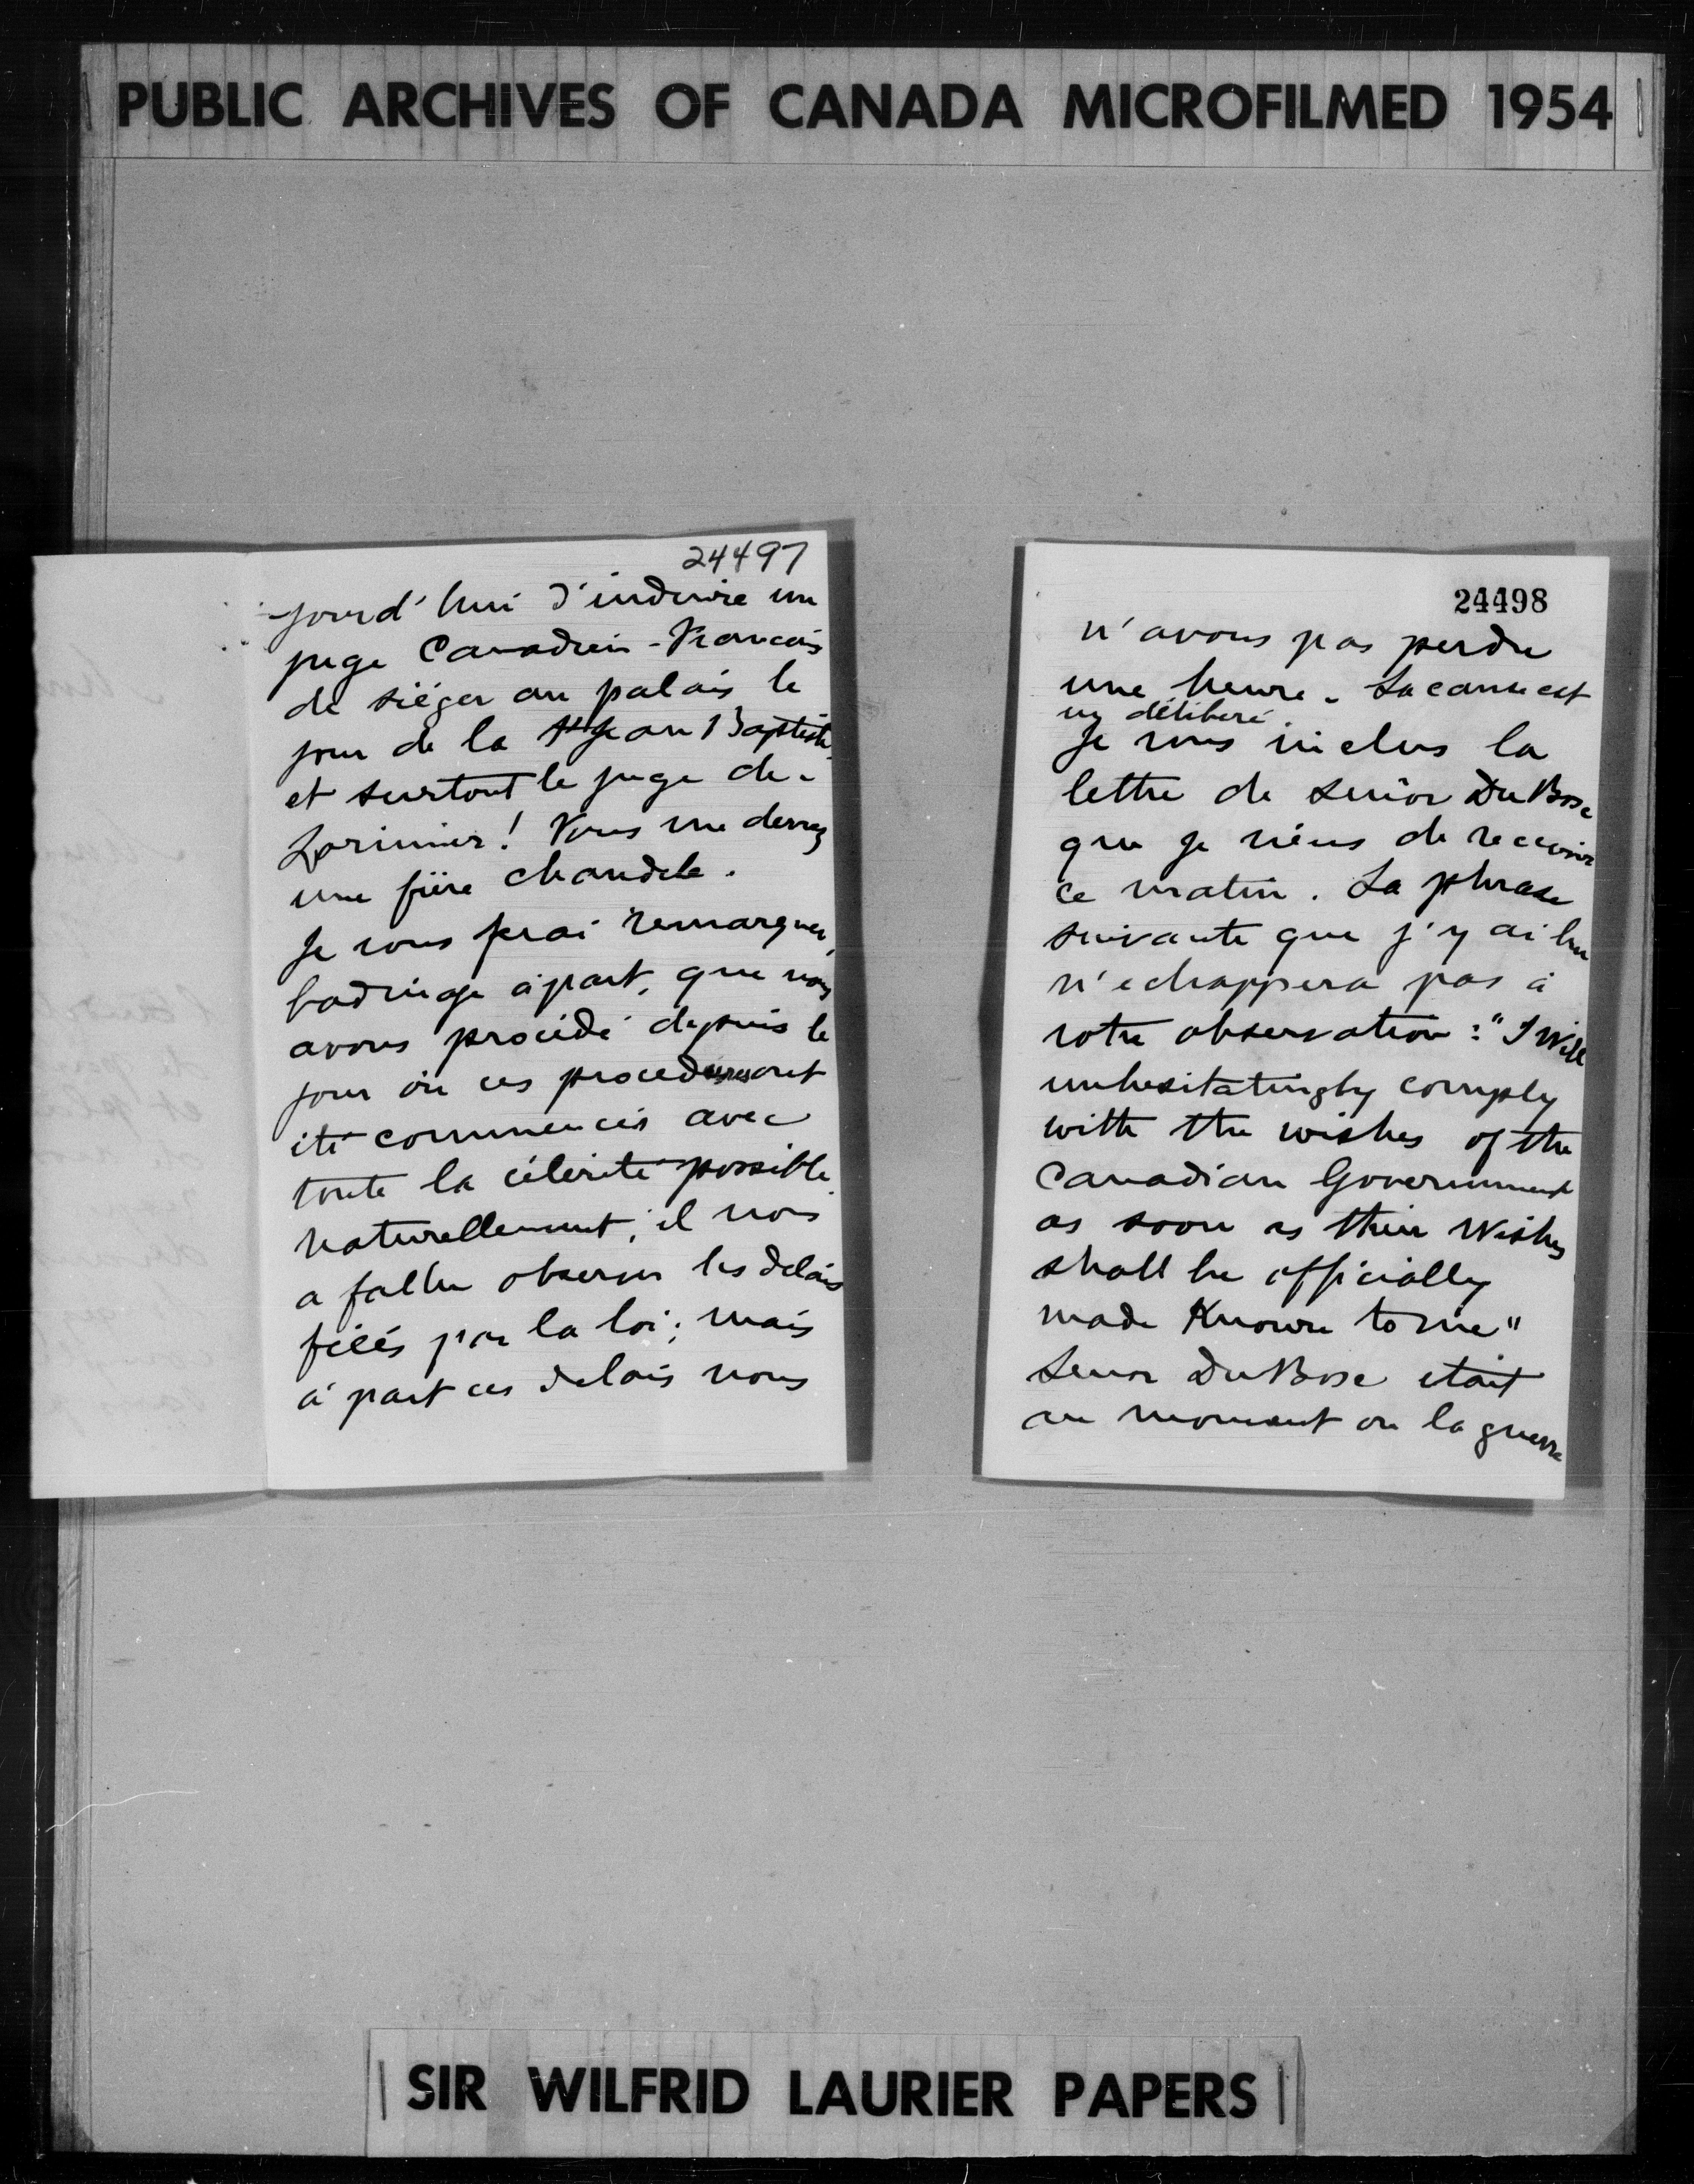 PUBLIC ARCHIVES OF CANADA MICROFILMED 1954
24497
jourd'hui d'induire un
juge Canadien-Francais
de siéger au palais le
jour de la St Jean Baptiste
et surtout le juge de-
Lorimier! Vous me devez
une fière chandele.
Je vous ferai remarquer,
badinage à part, que nous
avons procédé depuis le
jour où ces procedures ont
été commencés avec
toute la célérité possible.
Naturellement, il nous
a fallu observer les delais
fixés par la loi; mais
à part ces delais nous
24498
n'avons pas perdu
une heure. La cause est
en délibéré.
Je vous inclus la
lettre de Senor DuBosc
que je viens de recevoir
ce matin. La phrase
suivante que j'y ai lue
n'echappera pas à
votre observation: "I Will
unhesitatingly comply
with the wishes of the
Canadian Government
as soon as their Wishes
shall be officially
made Known to me"
Senor DuBosc etait
au moment ou la guerre
SIR WILFRID LAURIER PAPERS